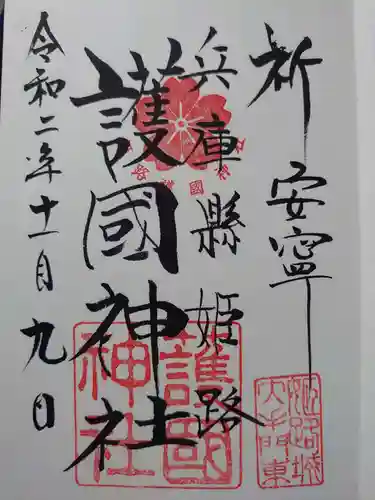 祈 安寧
兵庫縣姫路
護國神社
令和二年十一月九日
護國
神社
姫路城
大手門東